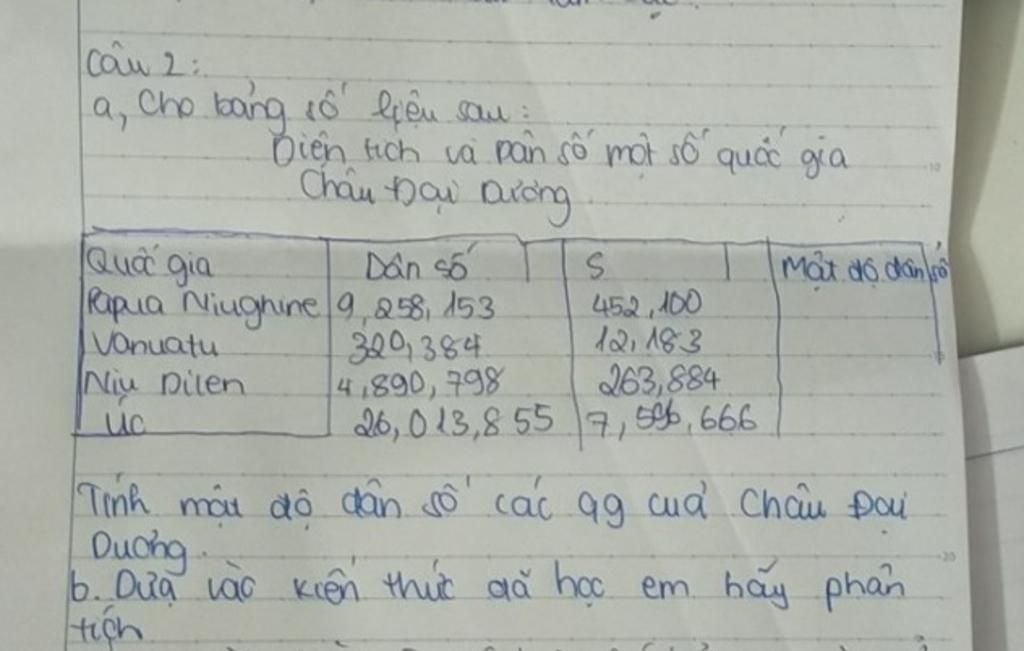 Câu 2:
a, Cho bảng số liệu sau:
Diện tích và Dân số một số quốc gia
Châu Đại Dương
Quốc gia Dân số S Mật độ dân số
Papua Niughine 9,258,153 452,100
Vanuatu 320,384 12,183
Niu Dilen 4,890,798 263,884
Úc 26,013,855 7,596,666
Tính mật độ dân số các qg của Châu Đại
Dương.
b. Dựa vào kiến thức đã học em hãy phân
tích